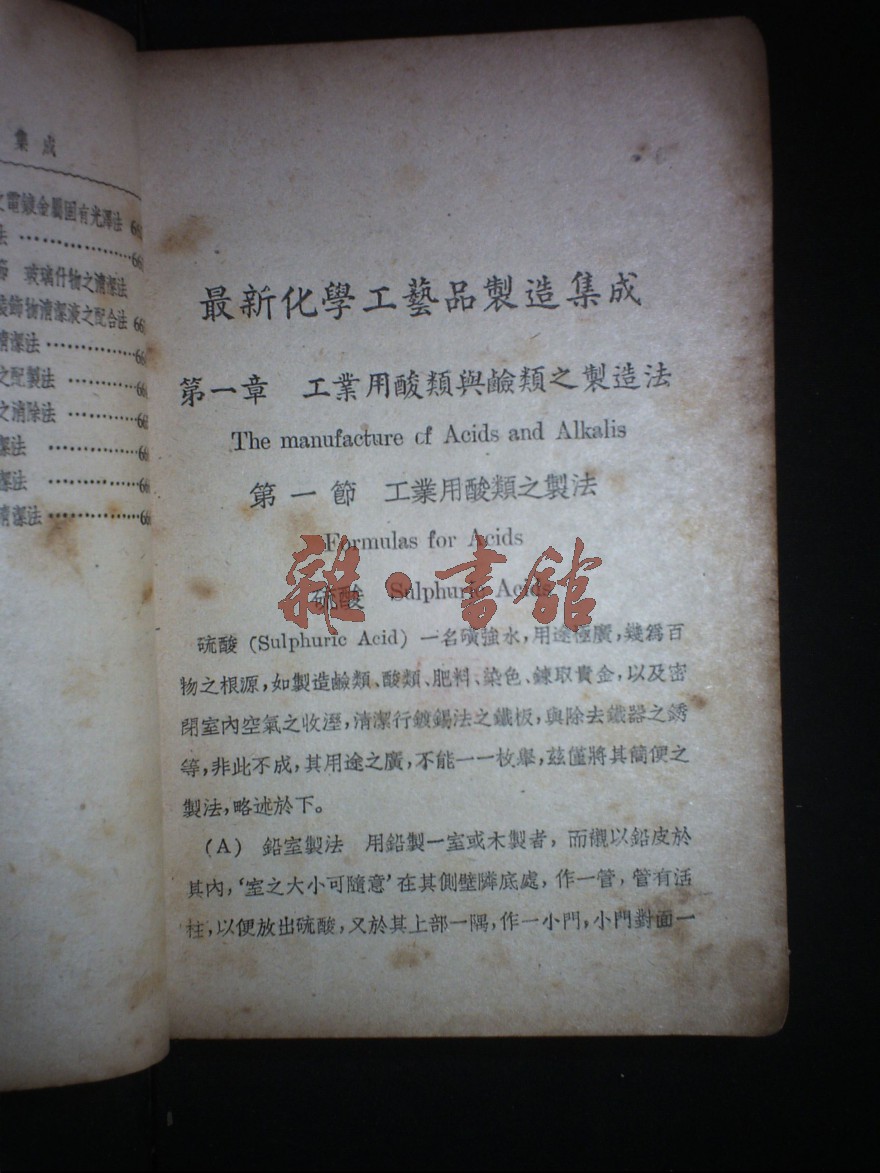 集成
之電鍍金屬固有光澤法
法
節 玻璃什物之清潔法
裝飾物清潔液之配合法
清潔法
之配製法
之消除法
潔法
潔法
清潔法
最新化學工藝品製造集成
第一章 工業用酸類與鹼類之製造法
The manufacture of Acids and Alkalis
第一節 工業用酸類之製法
Formulas for Acids
硫酸 Sulphuric Acids
雜·書館
硫酸 (Sulphuric Acid) 一名磺強水，用途極廣，幾爲百
物之根源，如製造鹼類、酸類、肥料、染色、鍊取貴金，以及密
閉室內空氣之收溼，清潔行鍍錫法之鐵板，與除去鐵器之銹
等，非此不成，其用途之廣，不能一一枚舉，茲僅將其簡便之
製法，略述於下。
(A) 鉛室製法 用鉛製一室或木製者，而襯以鉛皮於
其內，‘室之大小可隨意’在其側壁隣底處，作一管，管有活
柱，以便放出硫酸，又於其上部一隅，作一小門，小門對面一